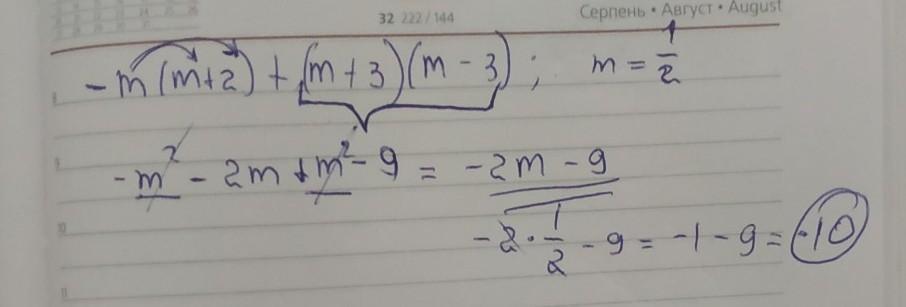 32 222/144
Серпень • Август • August
-m(m+2) + (m+3)(m-3); m = 1/2
-m² - 2m + m² - 9 = -2m - 9
-2 · 1/2 - 9 = -1 - 9 = -10